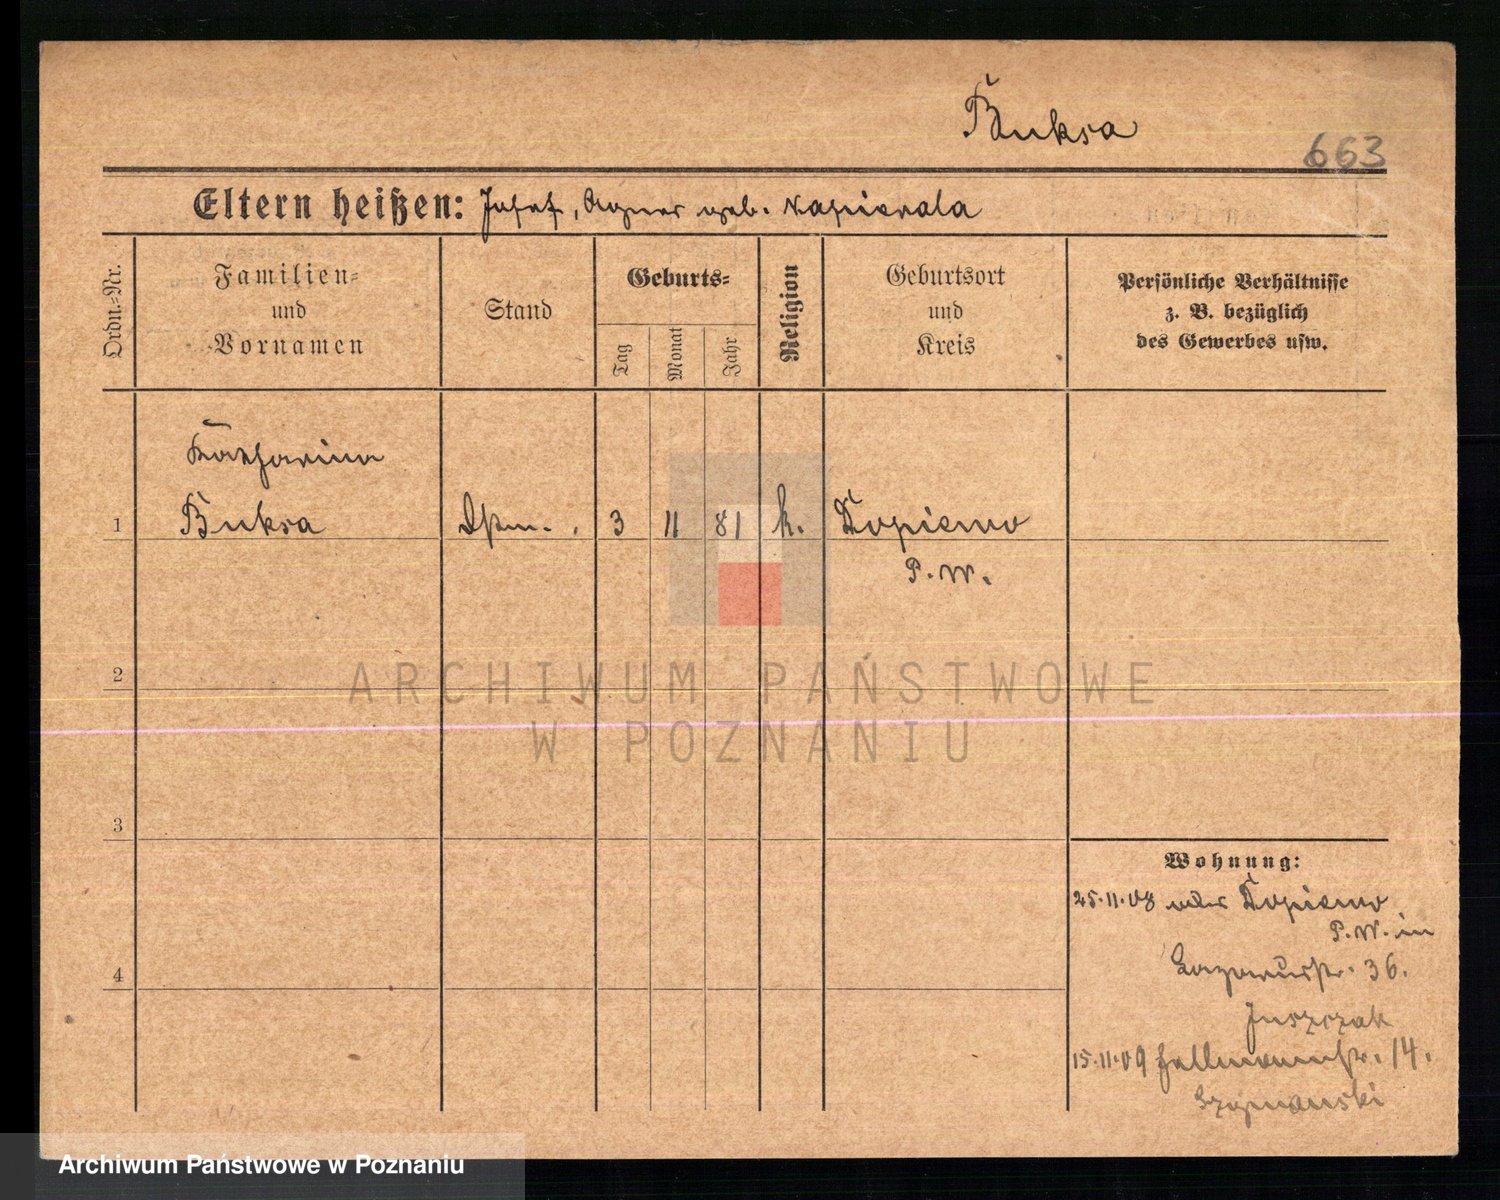 Buksa
663
Eltern heißen: Josef, Agnes geb. Kapierala
Ordn.-Nr.
Familien-
und
Vornamen
Stand
Geburts-
Tag
Monat
Jahr
Religion
Geburtsort
und
Kreis
Persönliche Verhältnisse
z. B. bezüglich
des Gewerbes usw.
Katharina
1 Buksa 3 11 81 k. Dopiewo
P. W.
2
ARCHIWUM PAŃSTWOWE
W POZNANIU
3
Wohnung:
25.11.08 Dopiewo
P. W. in
Lazarusstr. 36.
Juszczak
15.11.09 Hallmannstr. 14.
Szymanski
4
Archiwum Państwowe w Poznaniu